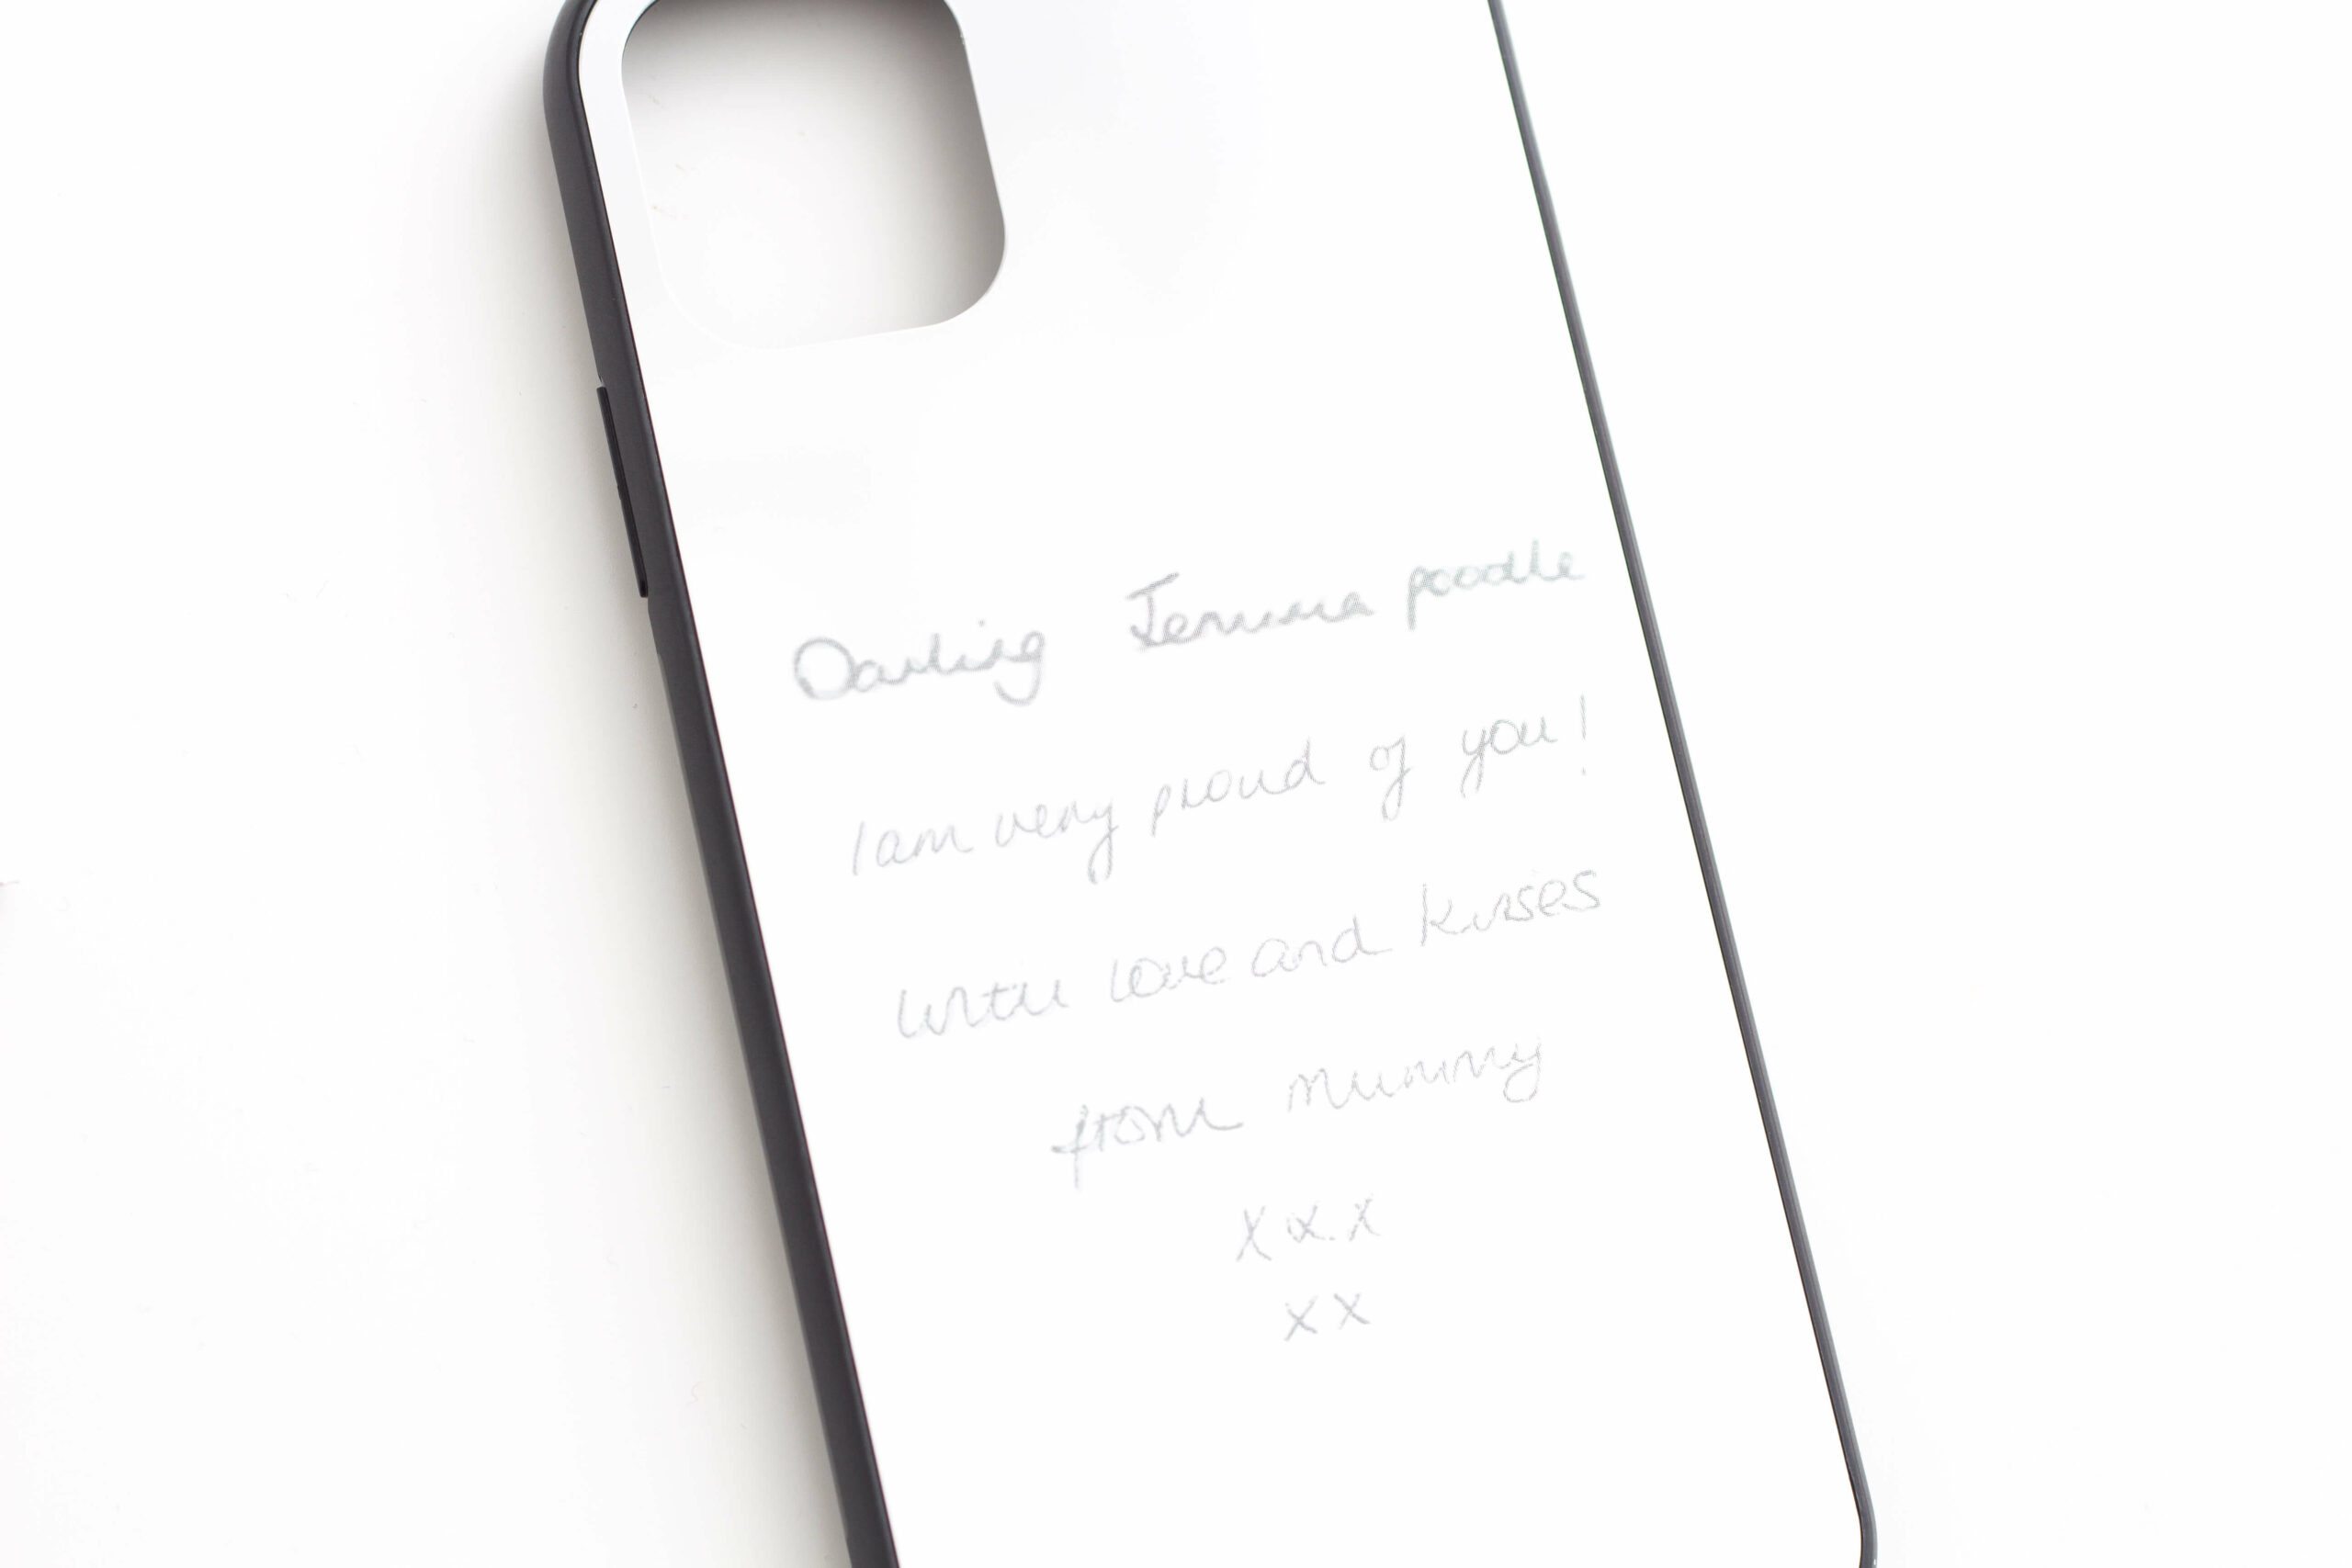 Darling Jemima poodle
I am very proud of you!
with love and kisses
from mummy
x x. x
x x